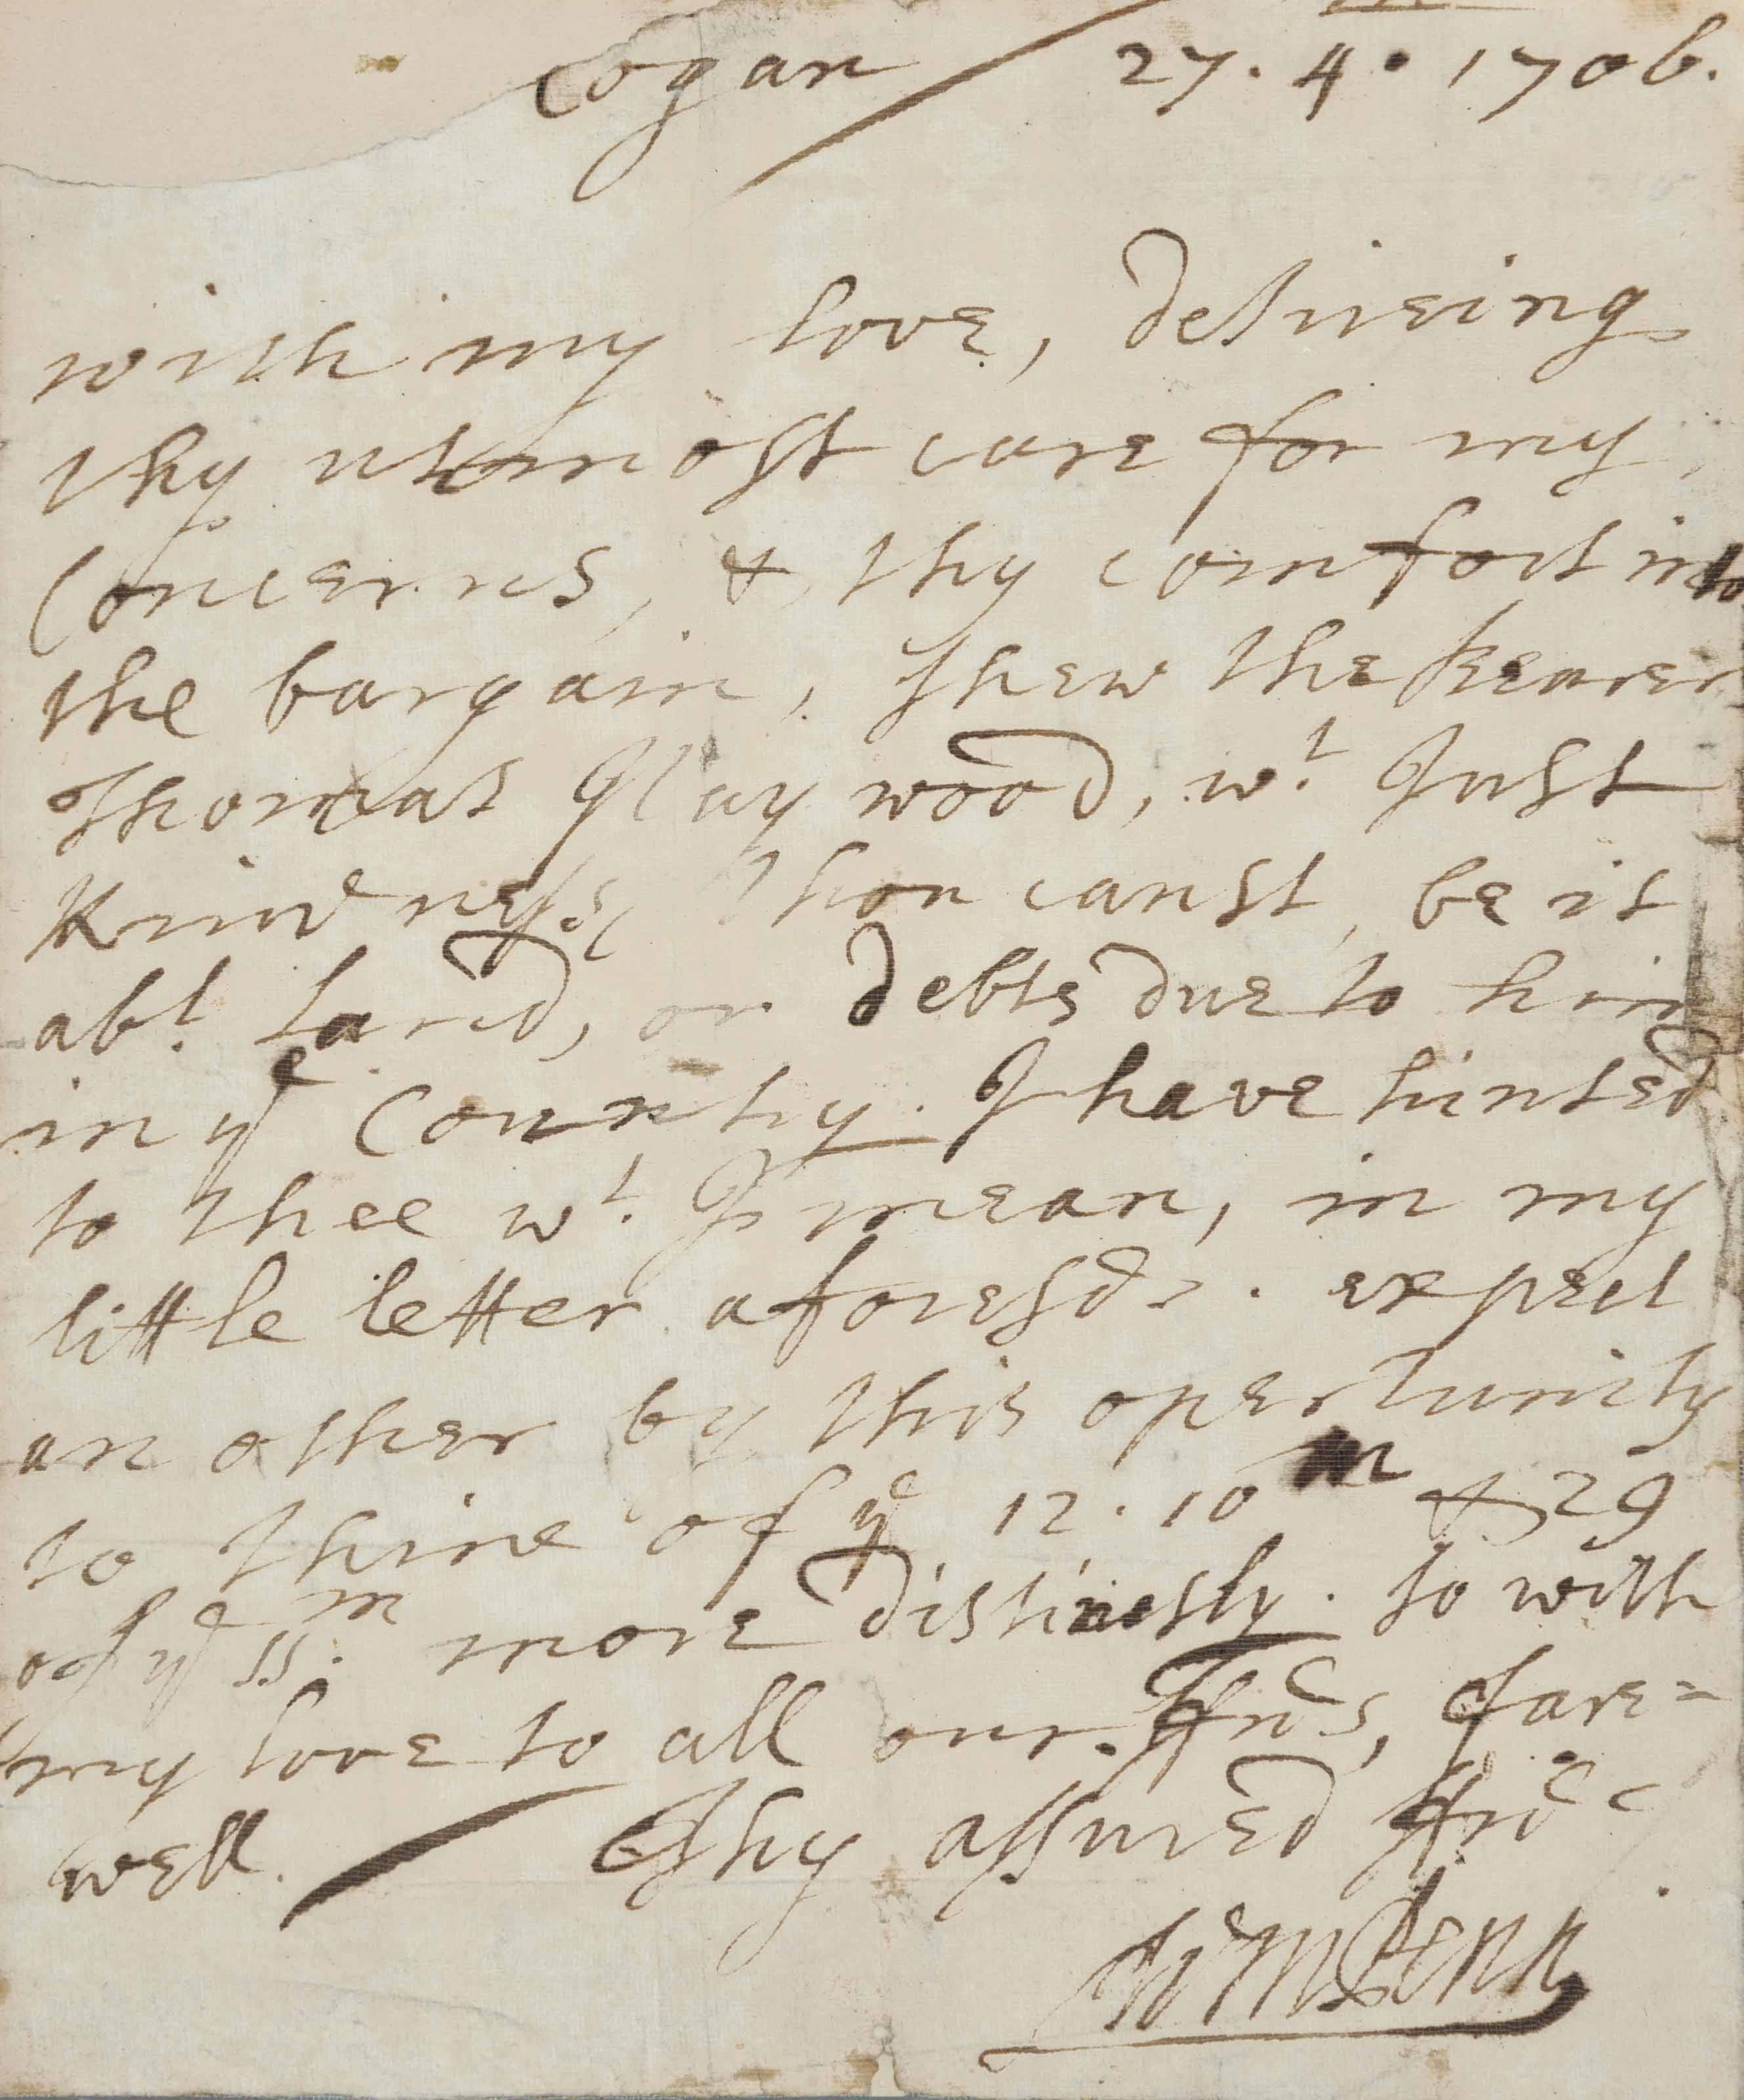 Logan / 27. 4. 1706.
with my love, desireing
thy utmost care for my
Concerns, & thy comfort into
the bargain, shew the bearer
Thomas wood, wt. Just
Kindness, thou canst, be it
abt. Land, or debts due to him
in ye Country. I have hinted
to thee wt. I mean, in my
little letter aforesd. expect
an other by this opertunity
to thine of ye 12. 10m & 29
of ye ss. m more distinctly. so with
my love to all our ffrds, fare=
well. / Thy assured ffrd
Wm Penn